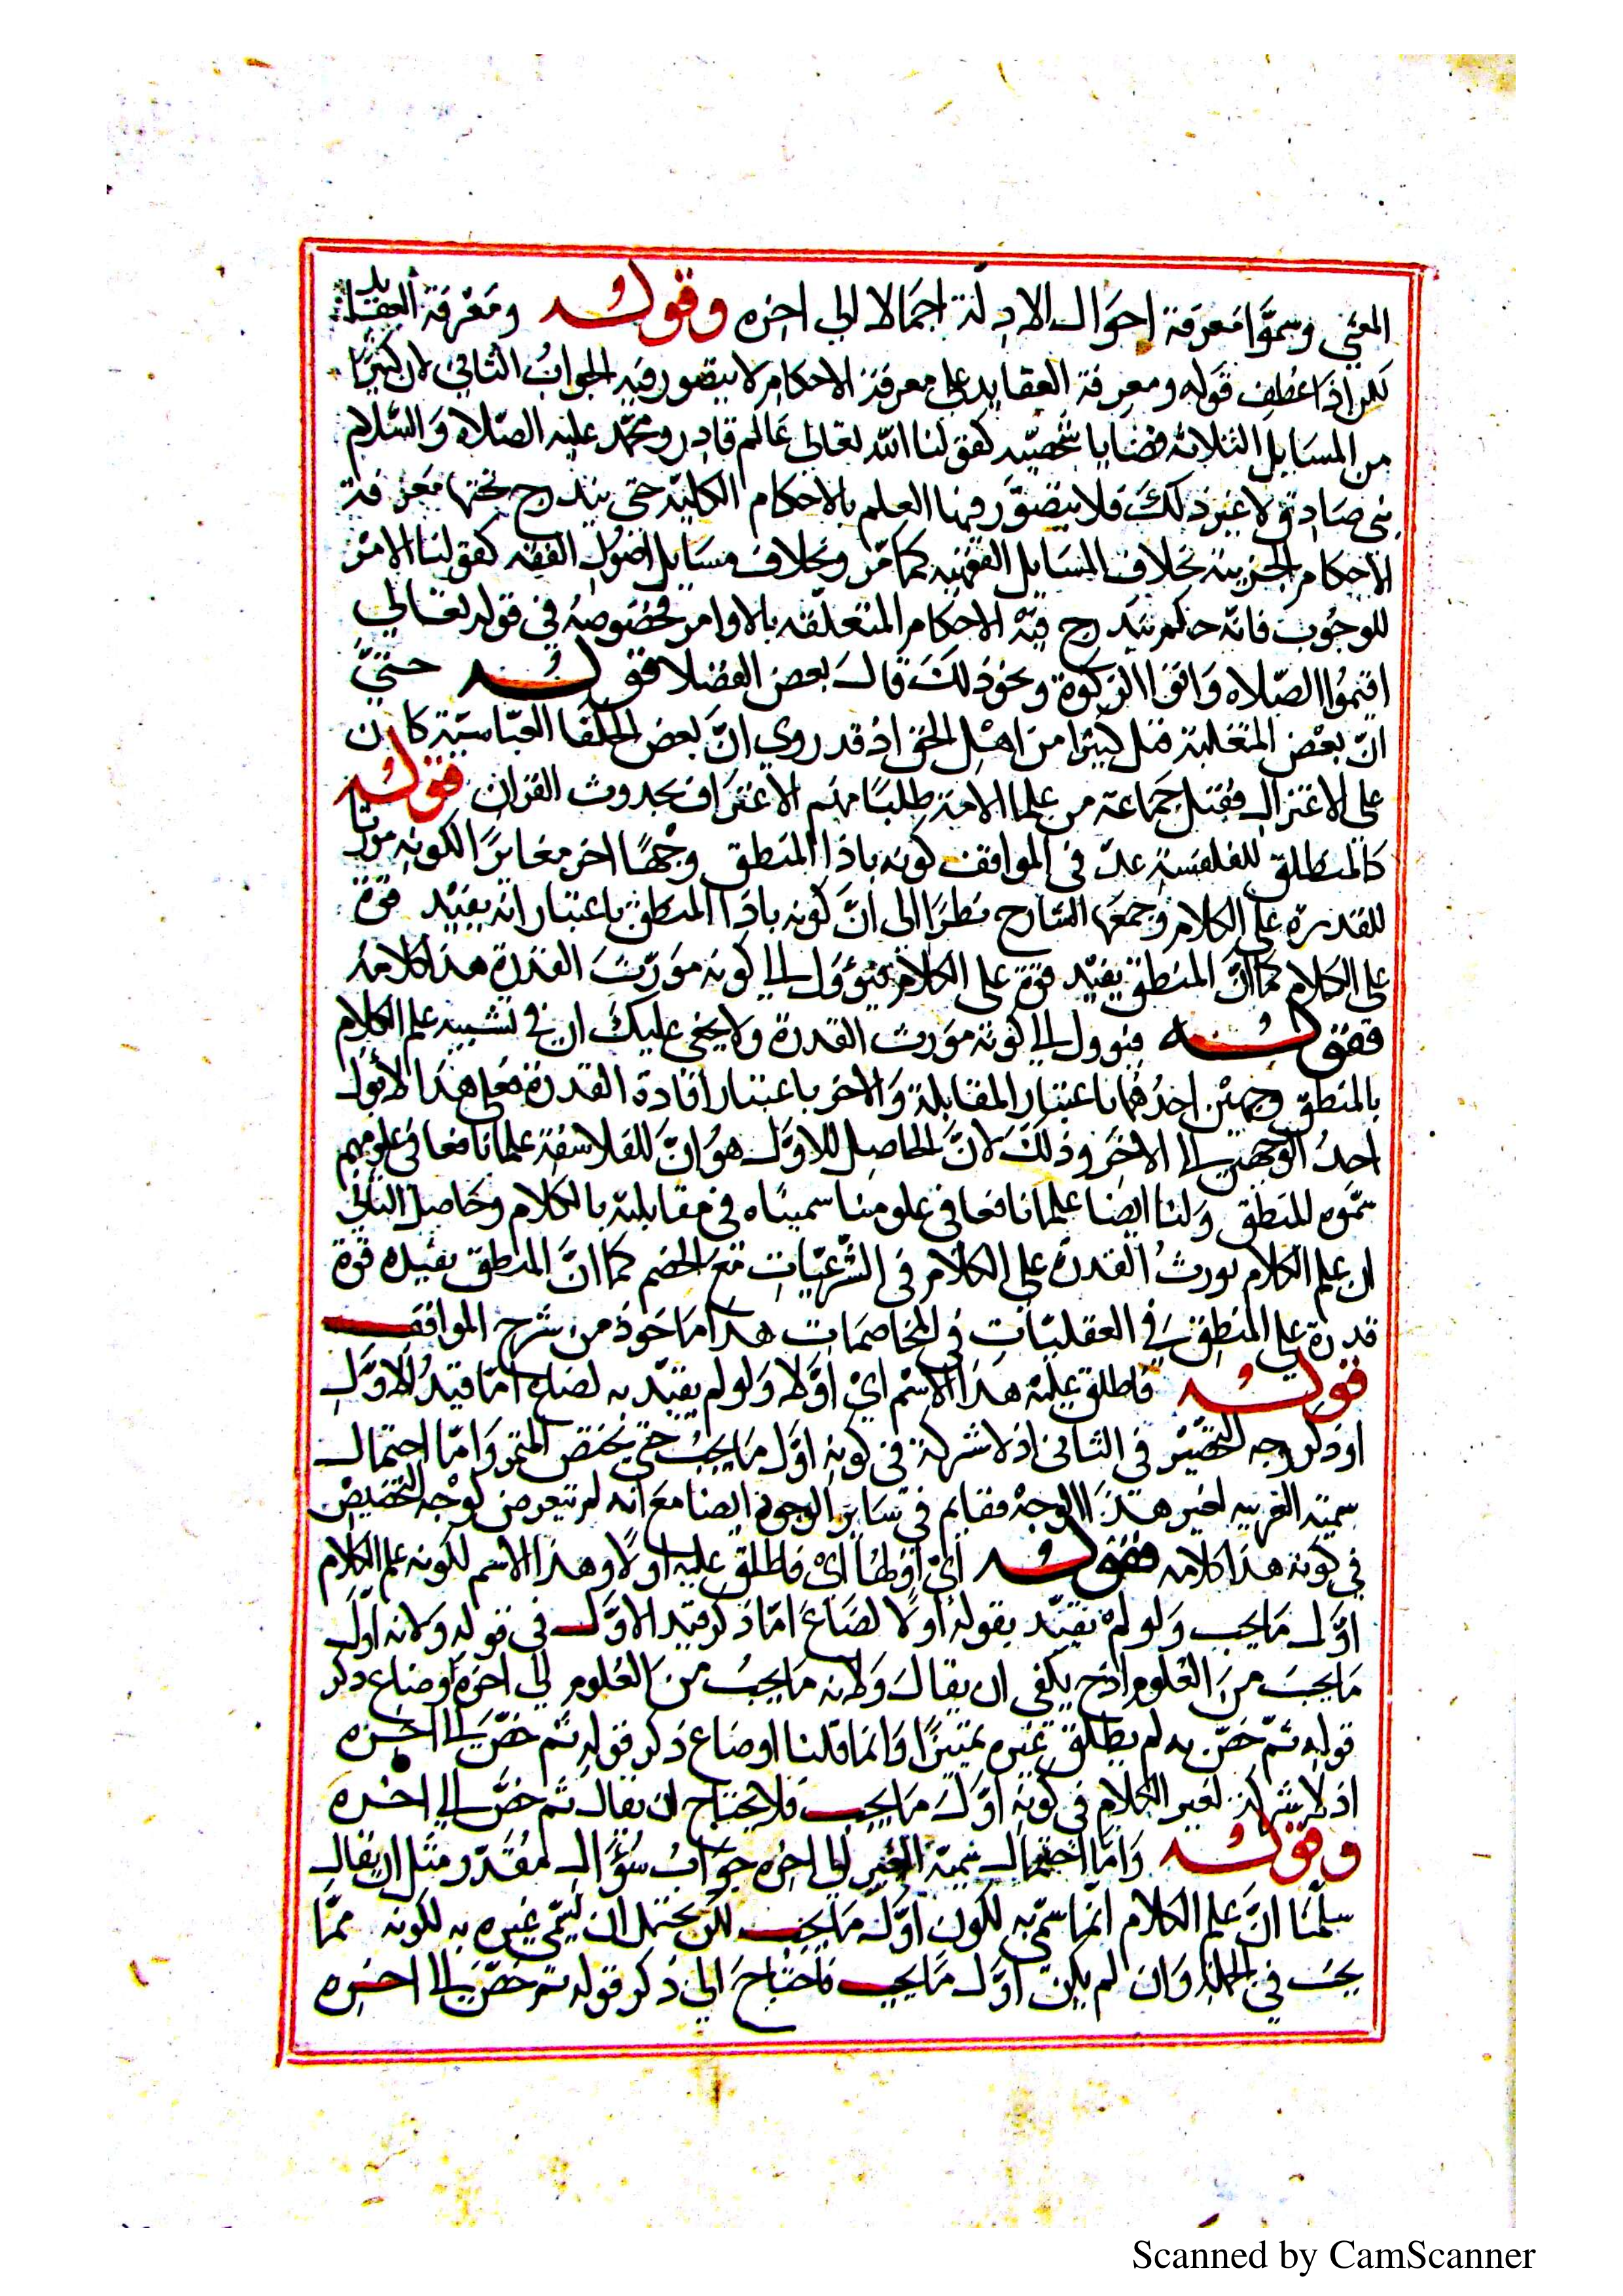 المعنى وسموا معرفة احوال الادلة اجمالا الى اخره وقوله ومعرفة العقايد
لكن اذا عطف قوله ومعرفة العقايد على معرفة الاحكام لا يتصور فيه الجواب الثاني لان كثيرا
من المسايل الثلاثه قضايا شخصيه كقولنا الله تعالى عالم قادر ومحمد عليه الصلاه والسلام
نبى صادق ولا غير ذلك فلا يتصور فيها العلم بالاحكام الكليه حتى يندرج تحتها معرفة
الاحكام الجزيية بخلاف المسايل الفقهيه كما مر وبخلاف مسايل اصول الفقه كقولنا الامر
للوجوب فانه حكم يندرج فيه الاحكام المتعلقه بالاوامر مخصوصه في قوله تعالى
اقيموا الصلاه واتوا الزكوة ونحو ذلك قال بعض الفضلا فقوله حتى
ان بعض المتغلبة قتل كثيرا من اهل الحق اذ قد روي ان بعض الخلفا العباسية كان
على الاعتزال فقتل جماعة من علما الامة طلبا منهم الاعتراف بحدوث القران فقوله
كالمنطق للفلسفة عد في المواقف كونه باذا المنطق وجها اخر مغايرا لكونه مورثا
للقدرة على الكلام وجمعها الشارح نظرا الى ان كونه باذا المنطق باعتبار انه يفيد قوة
على الكلام كما ان المنطق يفيد قوة على الكلام فيؤول الى كونه مورث القدرة هذا كلامه
فقوله فيوول الى كونه مورث القدرة ولا يخفى عليك ان في تشبيه علم الكلام
بالمنطق وجهين احدهما باعتبار المقابلة والاخر باعتبار افادة القدرة فعلى هذا لا يؤل
احد الوجهين الى الاخر وذلك لان الحاصل للاول هو ان للفلاسفة علما نافعا في علومهم
سموه المنطق ولنا ايضا علما نافعا في علومنا سميناه في مقابلته بالكلام وحاصل الثاني
ان علم الكلام يورث القدرة على الكلام في الشرعيات مع الخصم كما ان المنطق يفيده قوة
قدرة على المنطق في العقليات في المخاصمات هذا ماخوذ من شرح المواقف
فقوله فاطلق عليه هذا الاسم اي اولا ولو لم يقيد به لضاع اما قيد الاول
او ذكر وجه التخصيص في الثاني اذ لا شركة في كونه اول ما يجب حتى يخص المتميز واما احتمال
سمية الغير به لغير هذا الوجه فقايم في ساير الوجوه ايضا مع انه لم يتعرض لوجه التخصيص
في كونه هذا كلامه فقوله اي اولها اي فاطلق عليه اولا وهذا الاسم لكونه علم الكلام
اول ما يجب ولو لم يقيد بقوله اولا لضاع اما ذكر قيد الاول في قوله ولانه اول
ما يجب من العلوم اذ ح يكفي ان يقال ولانه ما يجب من العلوم الى اخره او ضاع ذكر
قوله ثم خص به لم يطلق غيره تمييزا وانما قلنا او ضاع ذكر قوله ثم خص الى اخره
اذ لا شركة لغير الكلام في كونه اول ما يجب فلا يحتاج ان يقال ثم خص الى اخره
وقوله واما احتمال سمية الغير الى اخره جواب سؤال مقدر ومثل ان يقال
سلمنا ان علم الكلام انما سمي به لكون اول ما يجب لكن يحتمل ان يسمى غيره به لكونه مما
يجب في الجملة وان لم يكن اول ما يجب فاحتاج الى ذكر قوله ثم خص الى اخره
Scanned by CamScanner